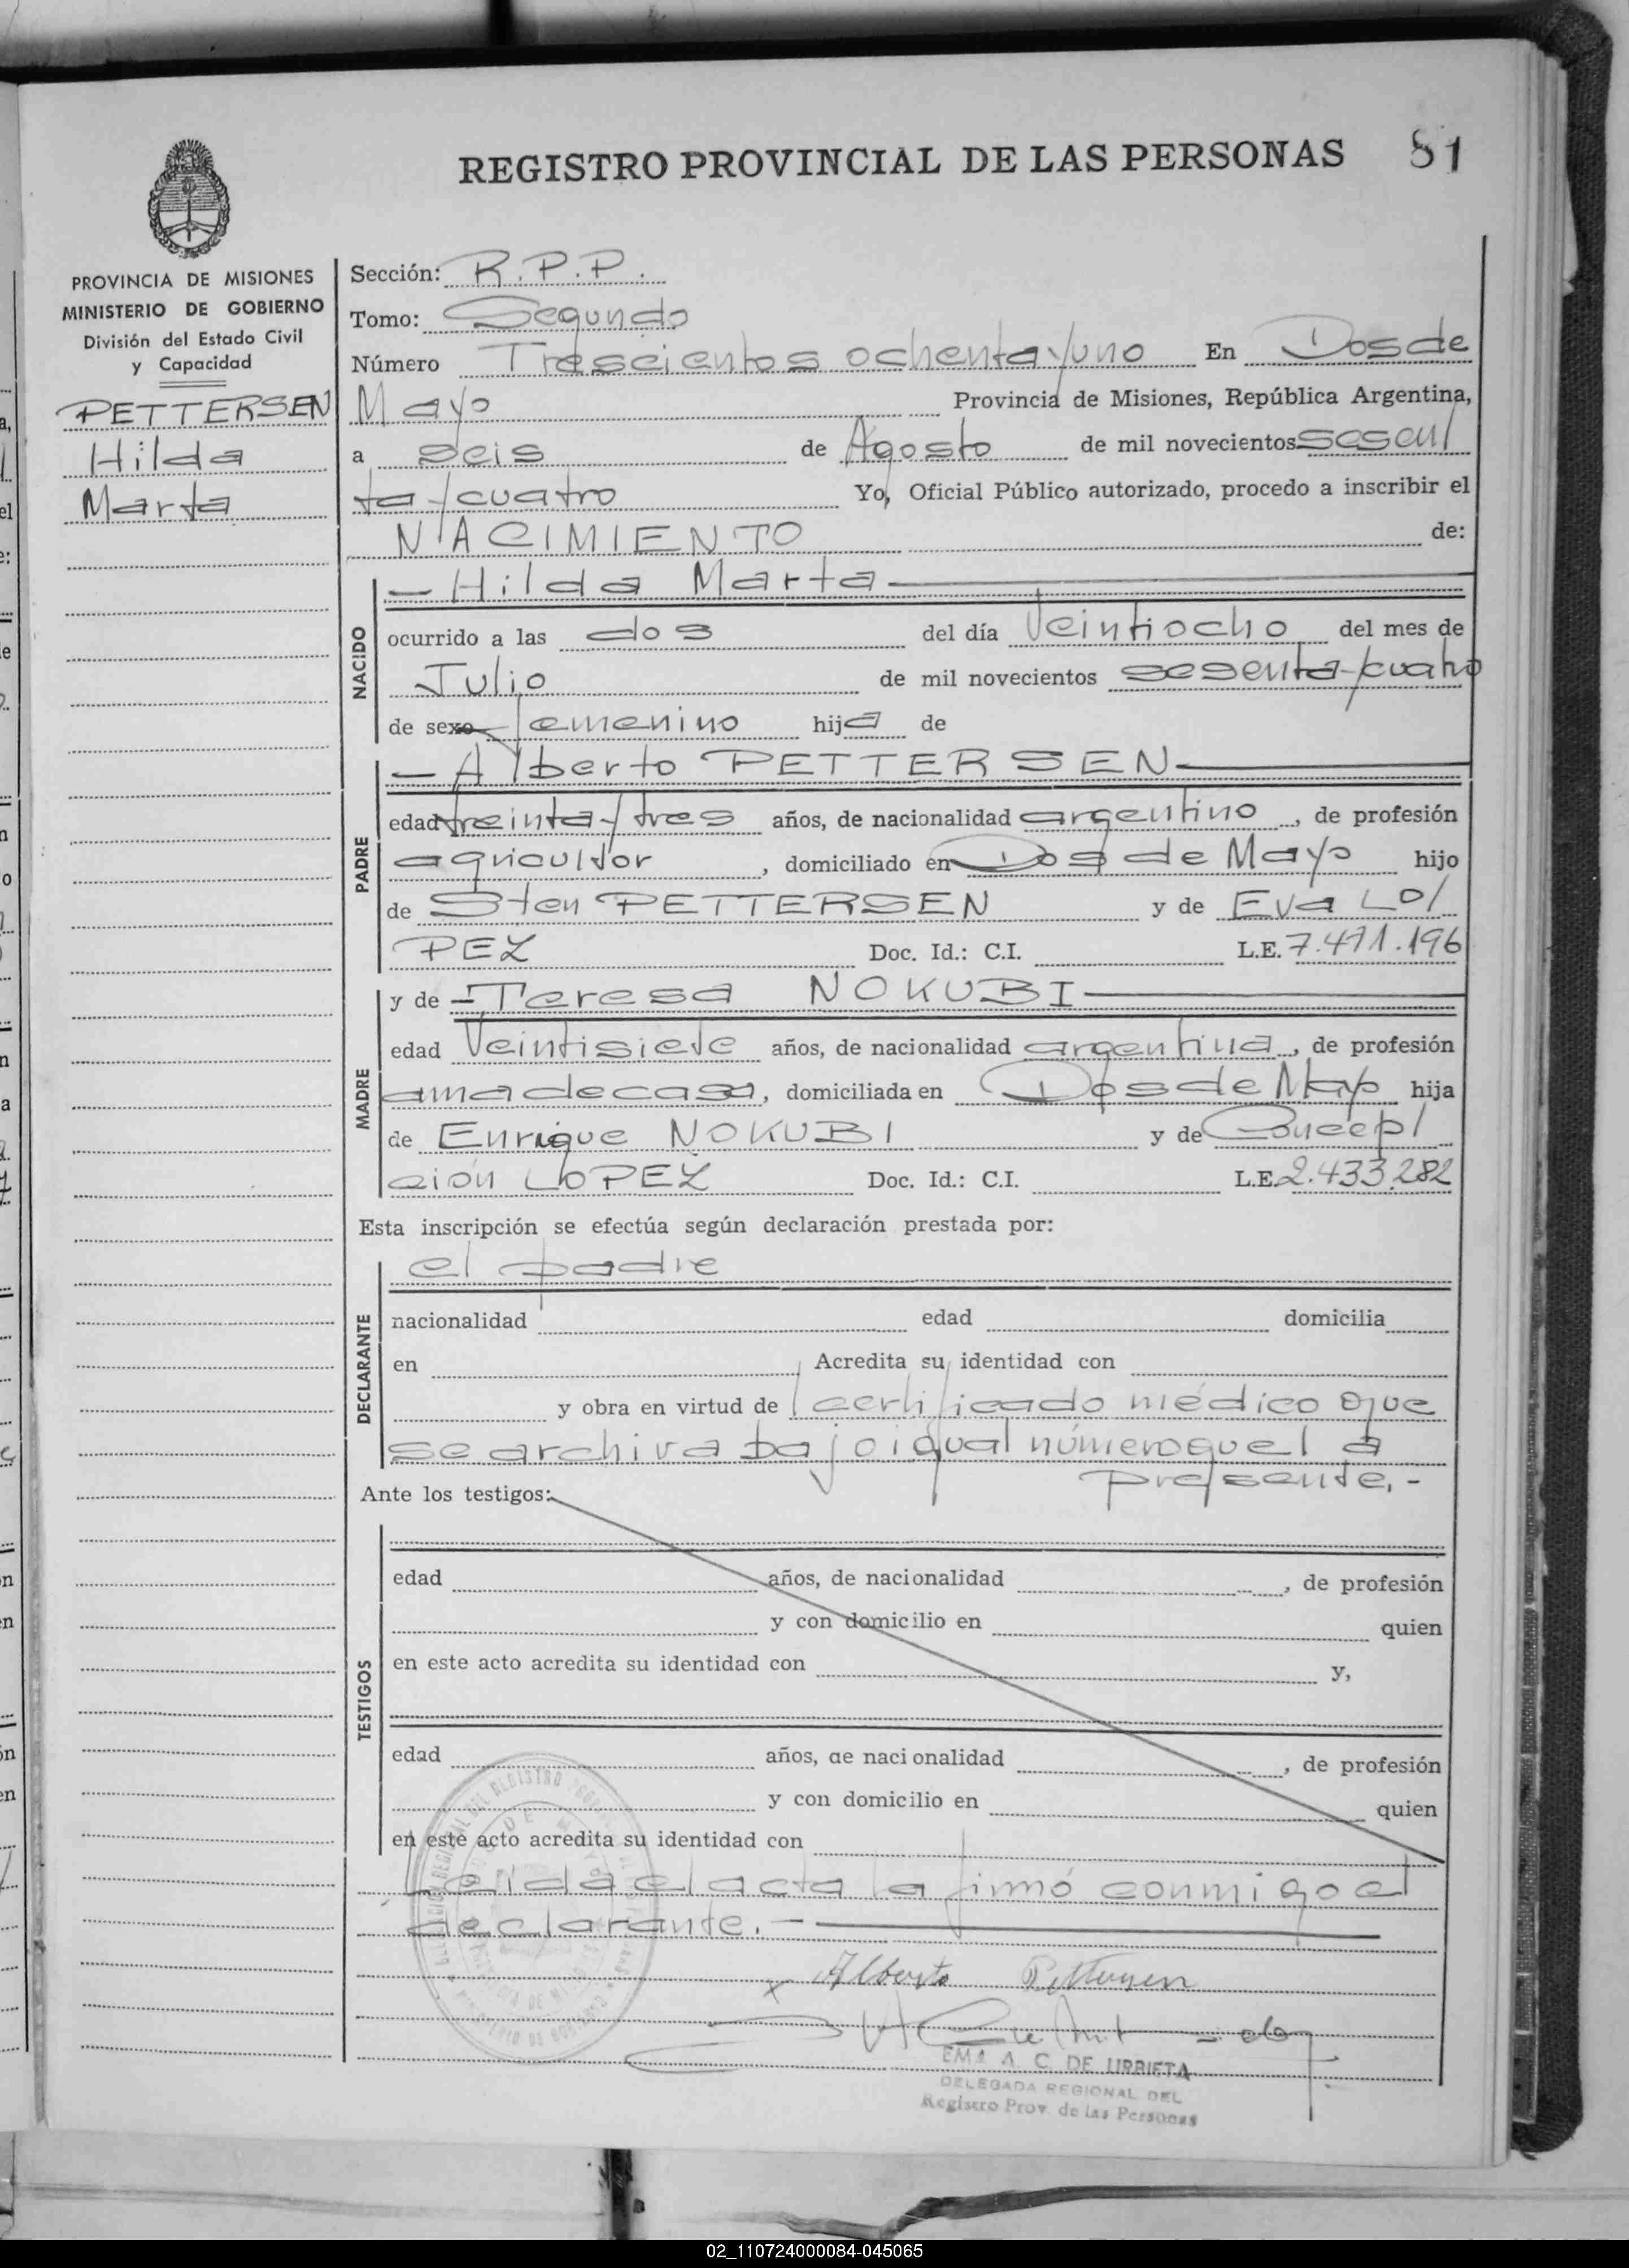 REGISTRO PROVINCIAL DE LAS PERSONAS 81
PROVINCIA DE MISIONES
MINISTERIO DE GOBIERNO
División del Estado Civil
y Capacidad
PETTERSEN
Hilda
Marta
Sección: R.P.P.
Tomo: Segundo
Número Trescientos ochenta y uno En Dos de
Mayo Provincia de Misiones, República Argentina,
a seis de Agosto de mil novecientos sesen/
ta y cuatro Yo, Oficial Público autorizado, procedo a inscribir el
NACIMIENTO de:
NACIDO
— Hilda Marta —
ocurrido a las dos del día Veintiocho del mes de
Julio de mil novecientos sesenta y cuatro
de sexo femenino hija de
PADRE
— Alberto PETTERSEN —
edad treinta y tres años, de nacionalidad argentino, de profesión
agricultor, domiciliado en Dos de Mayo hijo
de Sten PETTERSEN y de Eva LO/
PEZ Doc. Id.: C.I. L.E. 7.471.196
MADRE
y de — Teresa NOKUBI —
edad Veintisiete años, de nacionalidad argentina, de profesión
ama de casa, domiciliada en Dos de Mayo hija
de Enrique NOKUBI y de Concep/
ción LOPEZ Doc. Id.: C.I. L.E. 2.433.282
Esta inscripción se efectúa según declaración prestada por:
DECLARANTE
el padre
nacionalidad edad domicilia
en Acredita su identidad con
y obra en virtud de certificado médico que
se archiva bajo igual número que el
presente.-
Ante los testigos:
TESTIGOS
edad años, de nacionalidad , de profesión
y con domicilio en quien
en este acto acredita su identidad con y,
edad años, de nacionalidad , de profesión
y con domicilio en quien
en este acto acredita su identidad con
Leída el acta la firmó conmigo el
declarante.-
x Alberto Pettersen
EMA A. C. DE URRIETA
DELEGADA REGIONAL DEL
Registro Prov. de las Personas
02_110724000084-045065